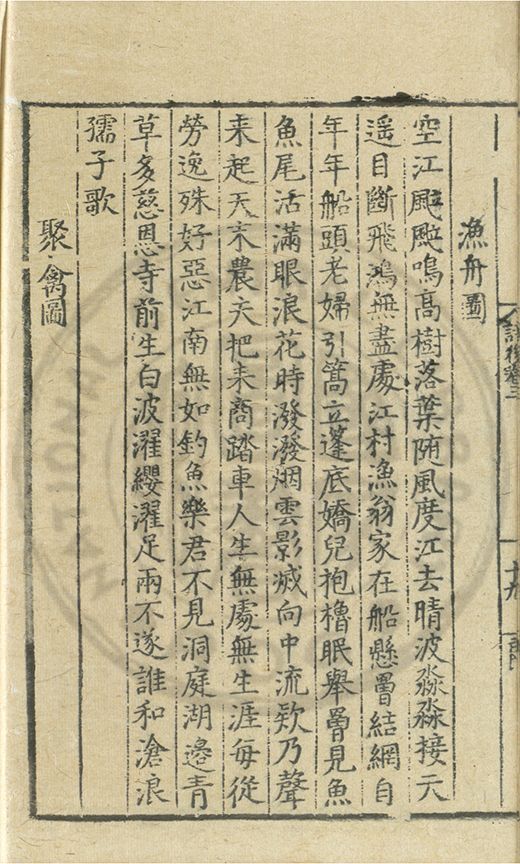 漁舟圖
空江颸颸鳴高樹落葉随風度江去晴波淼淼接天
遥目斷飛鴻無盡處江村漁翁家在船懸罾結網自
年年船頭老婦引篙立蓬底嬌兒抱櫓眠舉罾見魚
魚尾活滿眼浪花時潑潑烟雲影烕向中流欵乃聲
来起天末農夫把耒商踏車人生無處無生涯毎從
勞逸殊好惡江南無如釣魚樂君不見洞庭湖邉青
草多慈恩寺前生白波濯纓濯足兩不遂誰和滄浪
孺子歌
聚禽圖